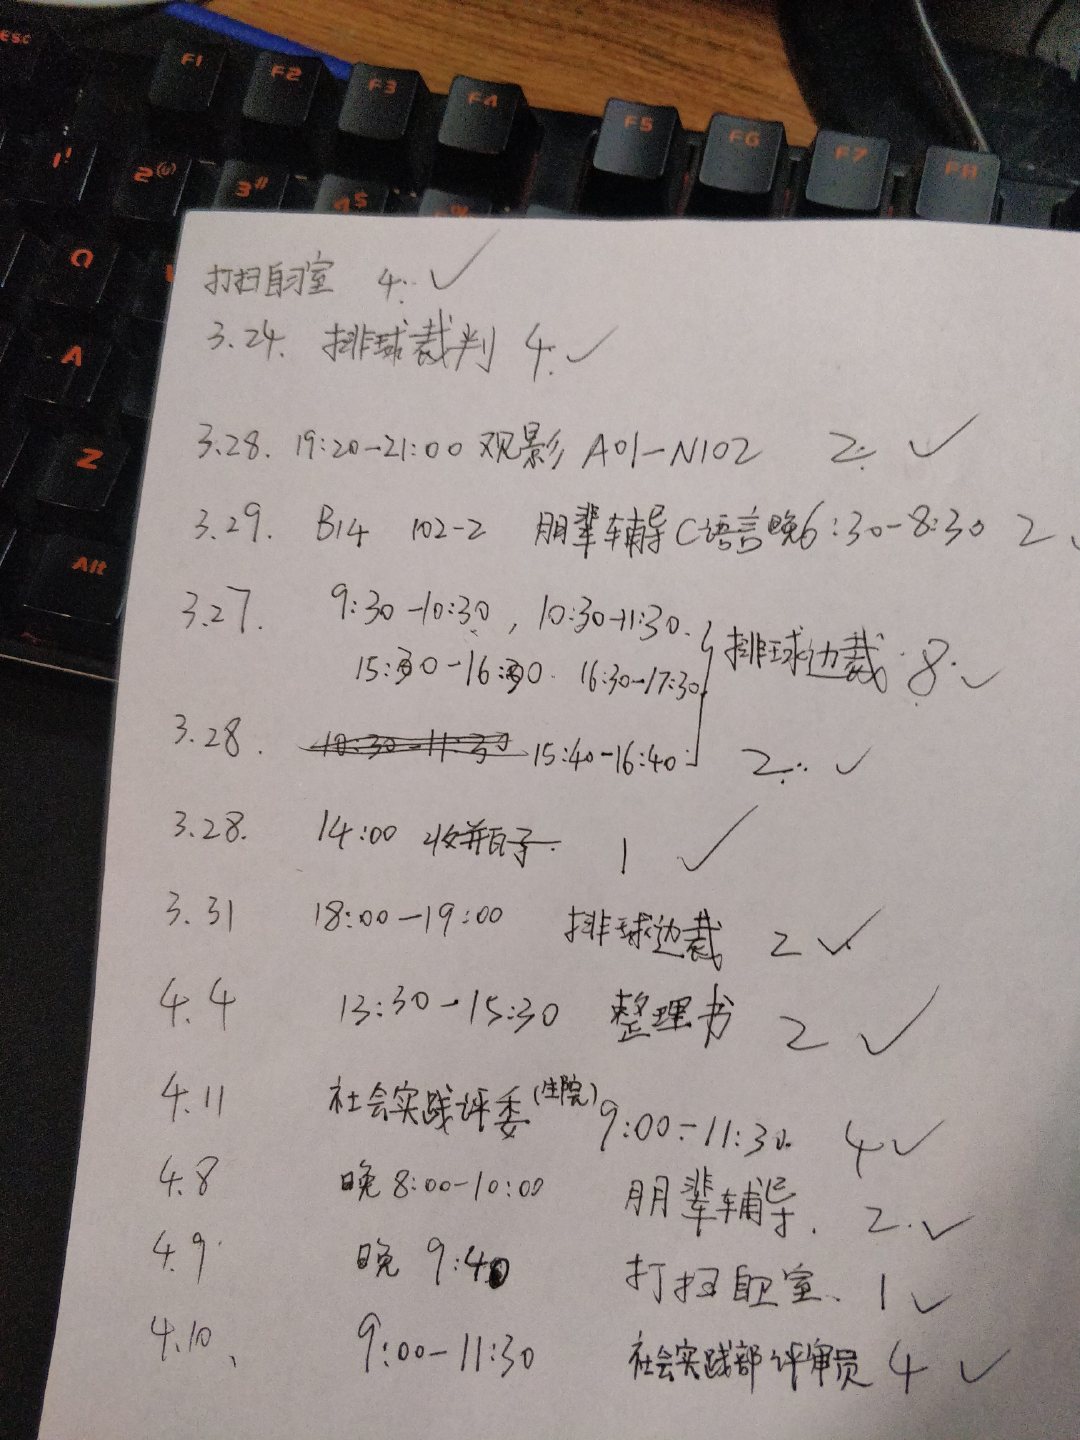 esc F1 F2 F3 F4 F5 F6 F7 F8
1! 2 3 4$
Q
A
Z
Alt
打扫自习室 4. ✓
3.24. 排球裁判 4. ✓
3.28. 19:20-21:00 观影 A01-N102 2. ✓
3.29. B14 102-2 朋辈辅导C语言晚6:30-8:30 2 ✓
3.27. 9:30-10:30, 10:30-11:30.
15:30-16:30. 16:30-17:30 排球边裁 8. ✓
3.28. 10:30-11:30 15:40-16:40. 2. ✓
3.28. 14:00 收瓶子. 1 ✓
3.31 18:00-19:00 排球边裁 2 ✓
4.4 13:30-15:30 整理书 2 ✓
4.11 社会实践评委(生院) 9:00-11:30. 4 ✓
4.8 晚8:00-10:00 朋辈辅导. 2. ✓
4.9 晚 9:40 打扫自卫室. 1 ✓
4.10、 9:00-11:30 社会实践部评审员 4 ✓